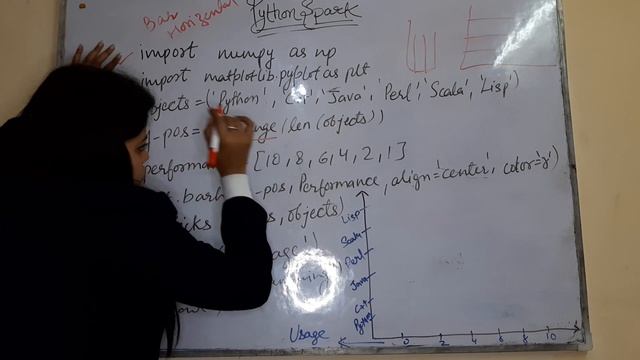 Bar
Horizental
Python Spark
import numpy as np
import matplotlib.pyplot as plt
objects = ('Python', 'C++', 'Java', 'Perl', 'Scala', 'Lisp')
-pos = (len(objects))
performan [10, 8, 6, 4, 2, 1]
.barh -pos, Performance, align='center', color='r')
icks s, objects)
age')
Lisp
Scala
Perl
Java
C++
Python
Usage
0 2 4 6 8 10